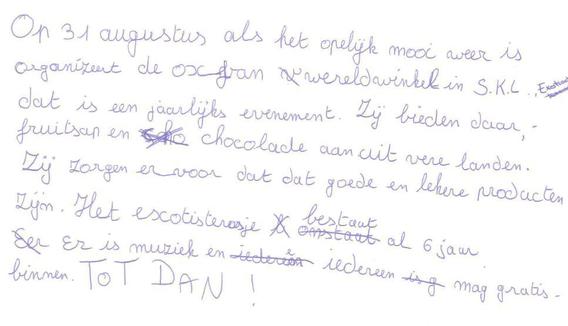 Op 31 augustus als het opelijk mooi weer is
organizeert de oxfran wereldwinkel in S.K.L.,
dat is een jaarlijks evenement. Zij bieden daar,-
fruitsap en chocolade aan uit vere landen.
Zij zorgen er voor dat dat goede en lekere producten
zijn. Het escotisterasje bestaat al 6 jaar.
Er is muziek en iedereen mag gratis-
binnen. TOT DAN !